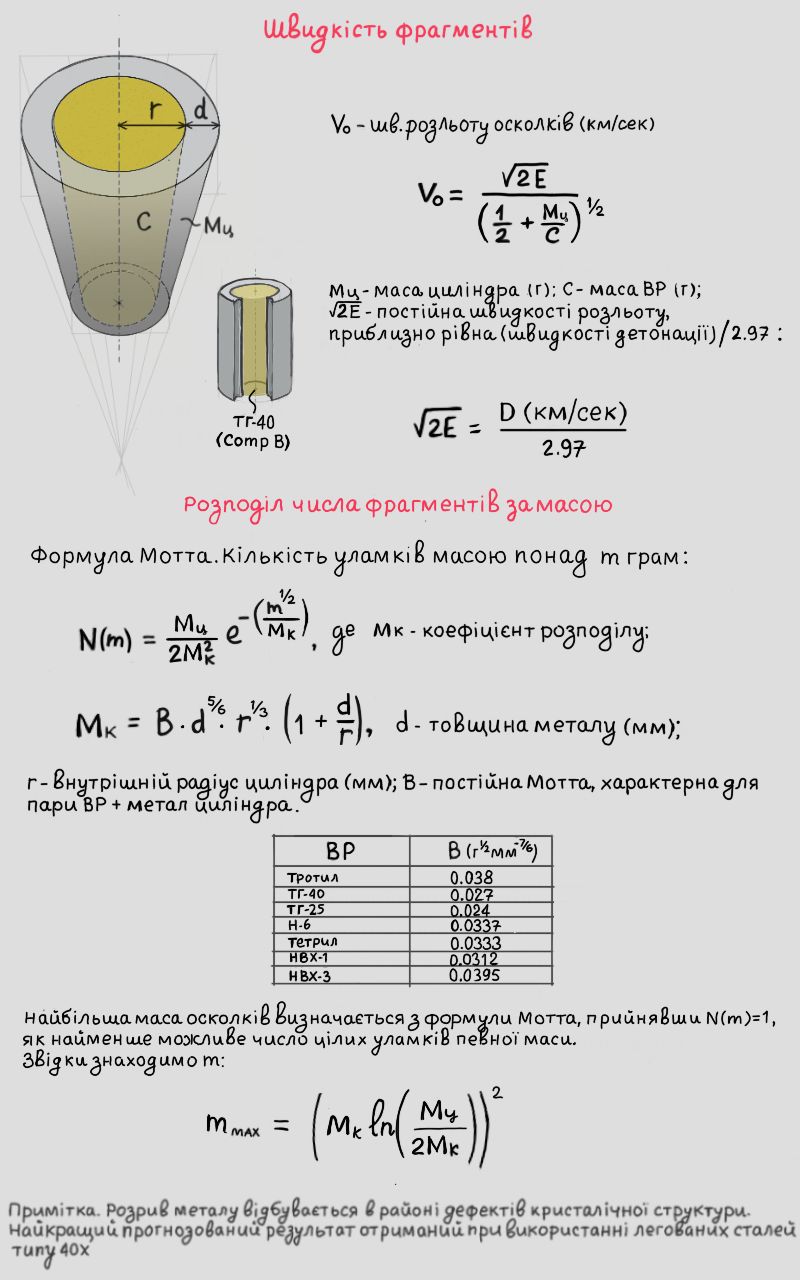 Швидкість фрагментів
r d
C Mц
V₀ – шв. розльоту осколків (км/сек)
V₀ = √2E / (1/2 + Mц/C)^1/2
Mц - маса циліндра (г); C - маса ВР (г);
√2E - постійна швидкості розльоту,
приблизно рівна (швидкості детонації)/2.97 :
ТГ-40
(Comp B)
√2E = D (км/сек) / 2.97
Розподіл числа фрагментів за масою
Формула Мотта. Кількість уламків масою понад m грам:
N(m) = Mц / 2Mк² e^-(m^1/2 / Mк), де Mк - коефіцієнт розподілу;
Mк = B · d^5/6 · r^1/3 · (1 + d/r), d - товщина металу (мм);
r - внутрішній радіус циліндра (мм); B – постійна Мотта, характерна для
пари ВР + метал циліндра.
ВР B (г^1/2 мм^-7/6)
Тротил 0.038
ТГ-40 0.027
ТГ-25 0.024
H-6 0.0337
Тетрил 0.0333
HBX-1 0.0312
HBX-3 0.0395
Найбільша маса осколків визначається з формули Мотта, прийнявши N(m)=1,
як найменше можливе число цілих уламків певної маси.
Звідки знаходимо m:
m мах = (Mк ln(Mц / 2Mк))²
Примітка. Розрив металу відбувається в районі дефектів кристалічної структури.
Найкращий прогнозований результат отриманий при використанні легованих сталей
типу 40х